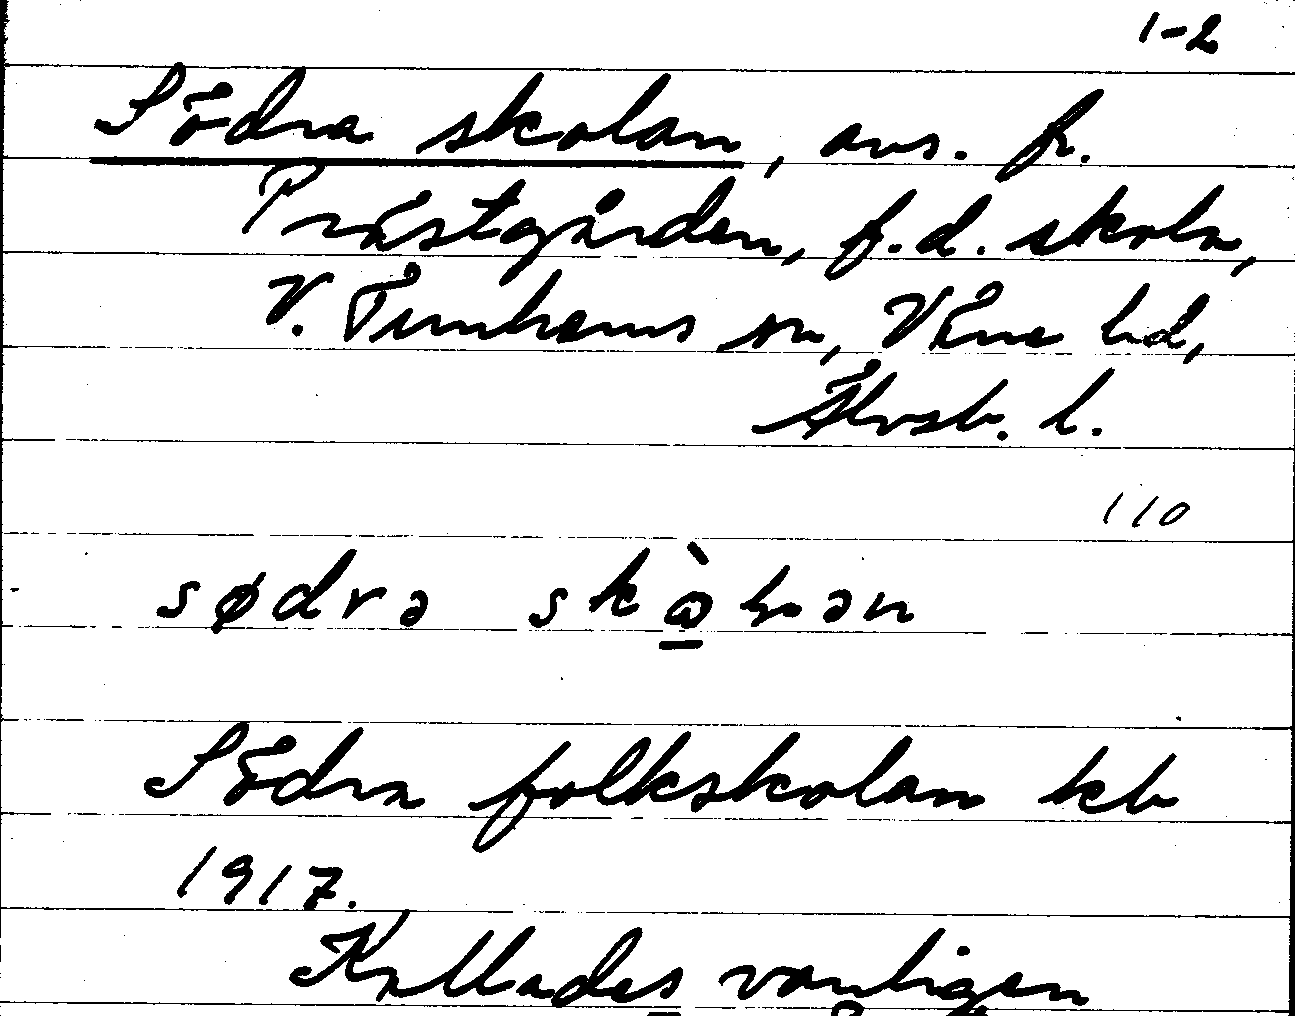 1-2
Södra skolan, avs. fr.
Prästgården, f.d. skola,
V. Tunhems sn, Väne hd,
Älvsb. l.
110
södra skolan
Södra folkskolan kb
1917.
Kallades vanligen